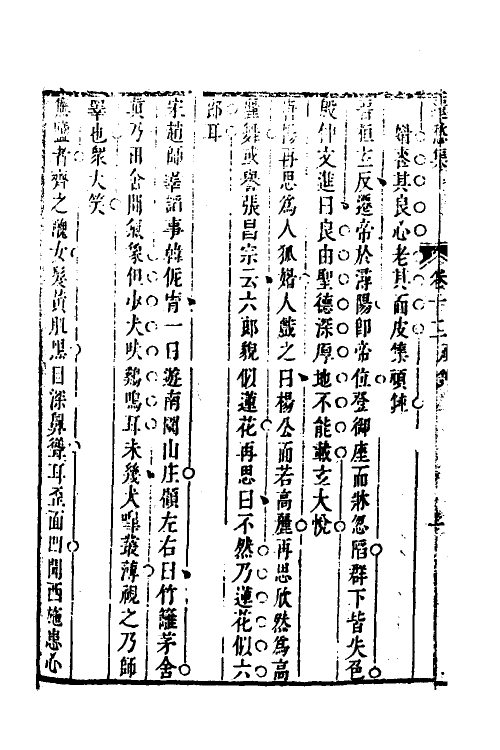 喪其良心老其面皮集頑鈍
晉桓玄反遷帝於潯陽卽帝位登御座而牀忽陷群下皆失色
殷仲文進曰良由聖德深厚地不能載玄大悅
唐楊再思爲人狐媚人戲之曰楊公面若高麗再思欣然爲高
麗舞或譽張昌宗云六郎貌似蓮花再思曰不然乃蓮花似六
郎耳
宋趙師𢍰諂事韓侂胄一日遊南園山庄顧左右曰竹籬茅舍
眞乃田舍間氣象但少犬吠鷄鳴耳未幾犬嘷叢薄視之乃師
𢍰也衆大笑
無鹽者齊之醜女髮黃肌黑目深鼻聳耳歪面凹聞西施患心
卷十三